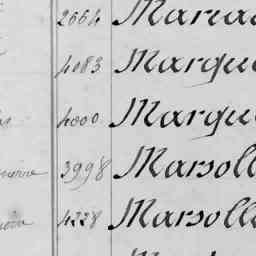 2664 Maria
4083 Margue
4000 Margue
3998 Marsoll
4228 Marsoll